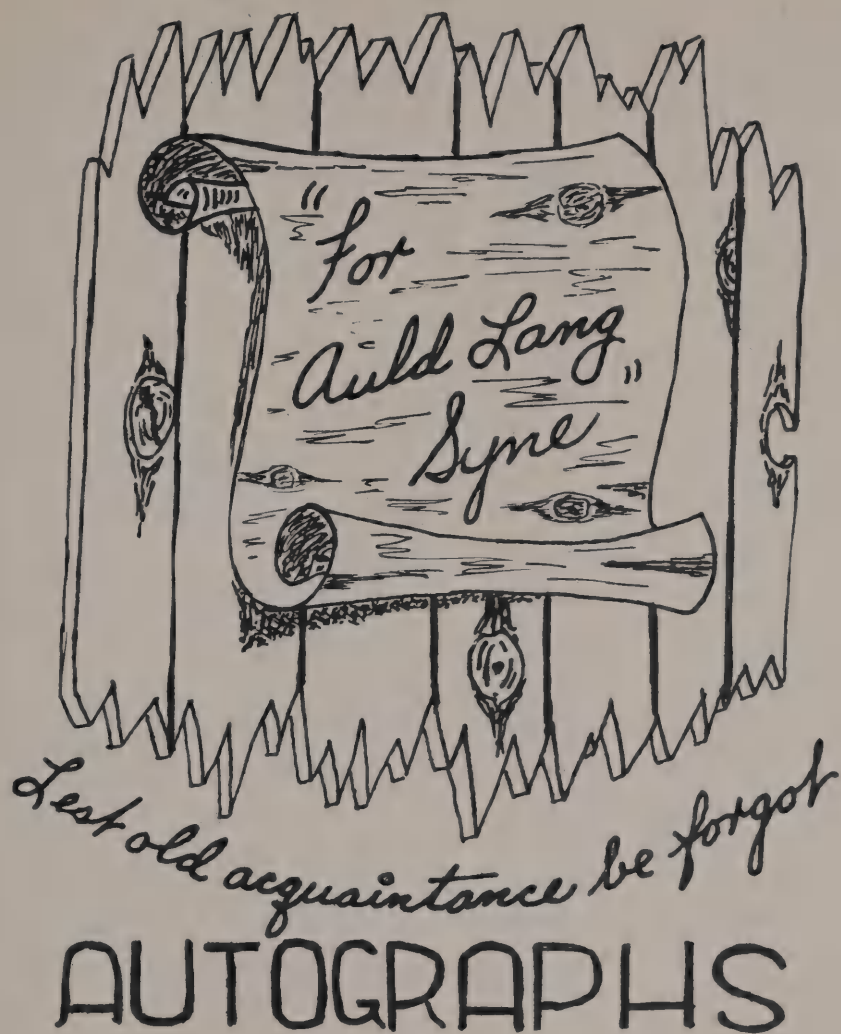 "For
Auld Lang
Syne"
Lest old acquaintance be forgot
AUTOGRAPHS